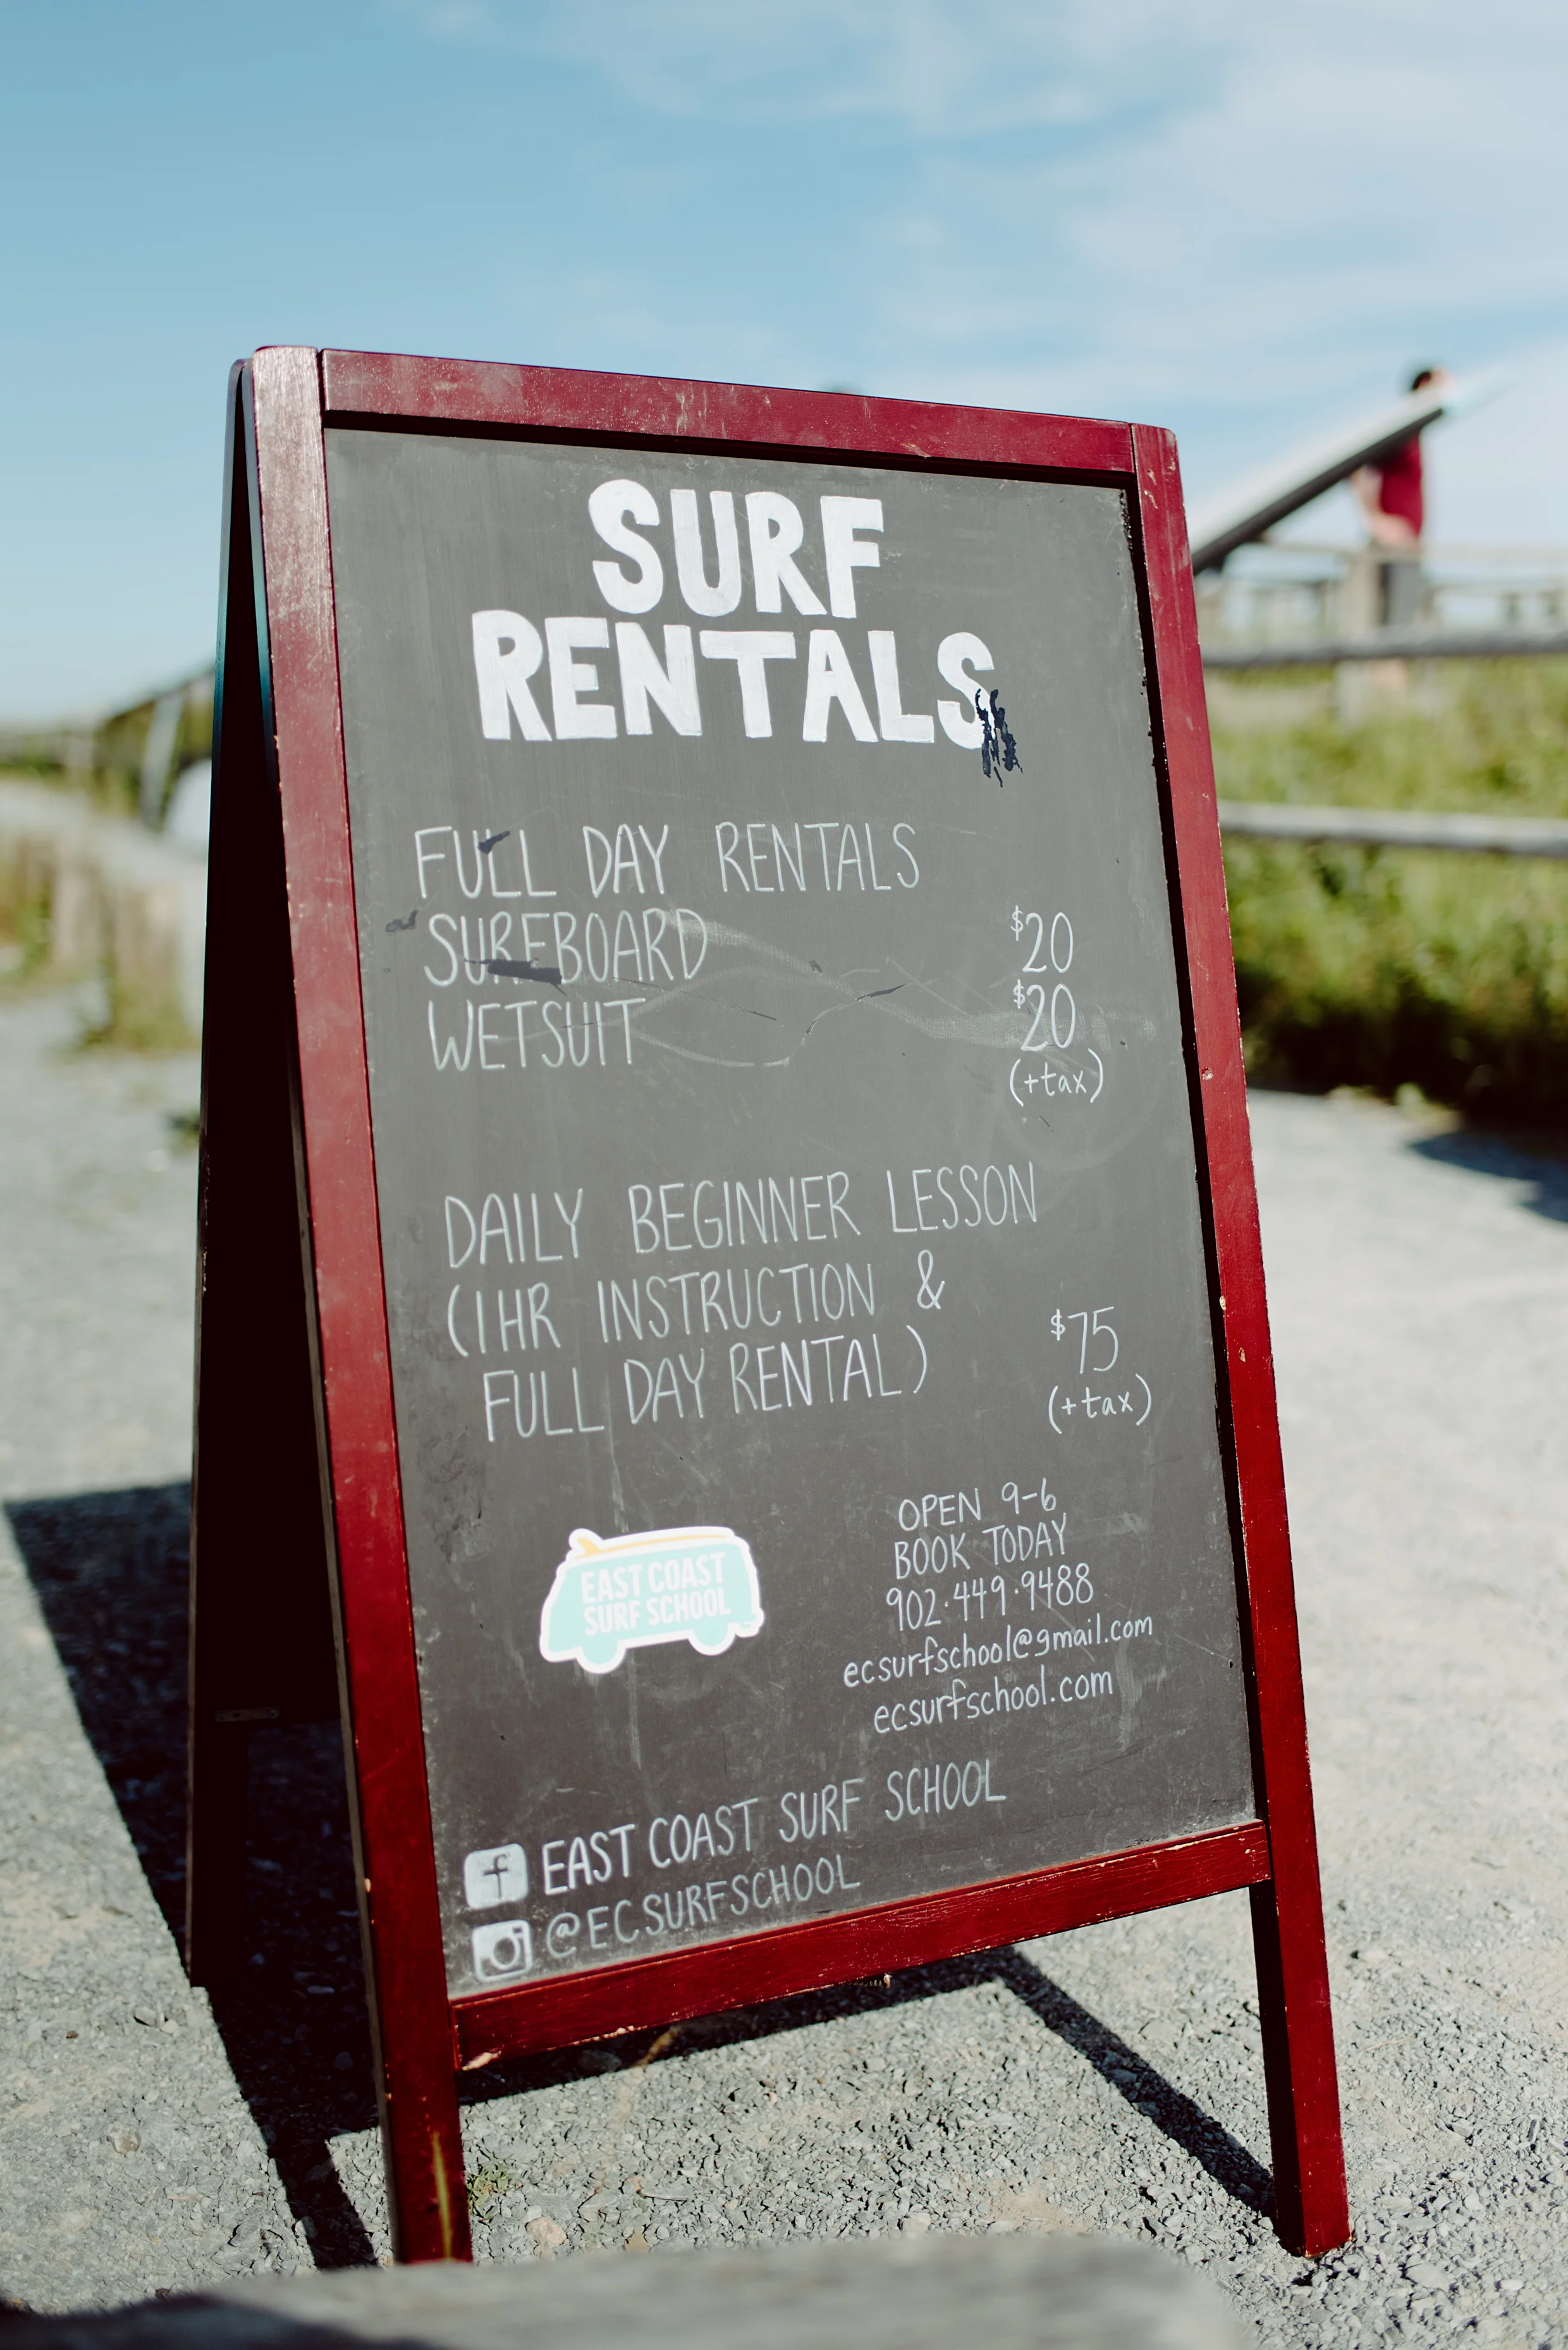 SURF
RENTALS
FULL DAY RENTALS
SURFBOARD $20
WETSUIT $20
(+tax)
DAILY BEGINNER LESSON
(1HR INSTRUCTION &
FULL DAY RENTAL) $75
(+tax)
EAST COAST
SURF SCHOOL
OPEN 9-6
BOOK TODAY
902·449·9488
ecsurfschool@gmail.com
ecsurfschool.com
f EAST COAST SURF SCHOOL
@ECSURFSCHOOL